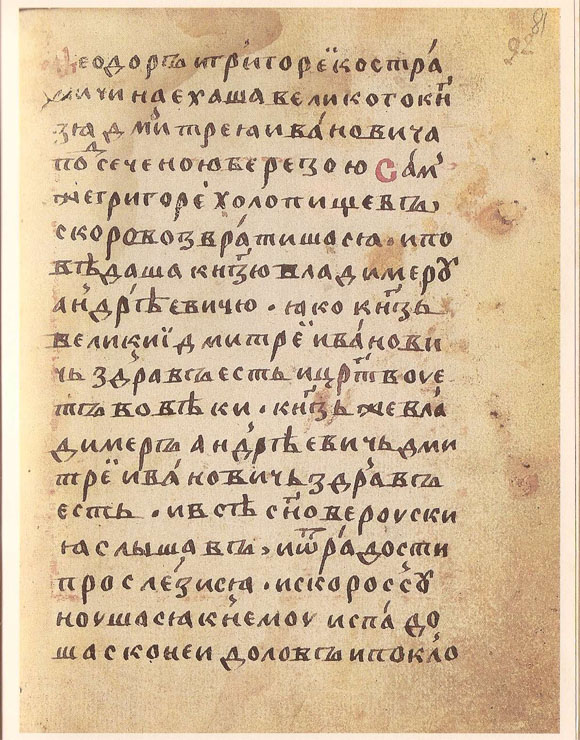 ѳеодоръ и григоре костра
мичи наехаша великого кнѧ
зю дмитрею ивановича
под сеченою березою Сам
же григоре холопищевъ
скоро возвратишасꙗ и по
вѣдаша кнзю владимеру
андрѣевичю · ꙗко кнзь
великиї дмитреї иванови
чь здравъ есть и црствоуе
тъ во вѣки · кнзь же вла
димеръ андрѣевичь дми
треї ивановичь здравъ
есть · и всѣ сновероуски
ꙗ слышавъ, и ѿ радости
прослезисꙗ · и скоро ссу
ноушасꙗ к немоу и спадо
ша с конеи доловъ и покло